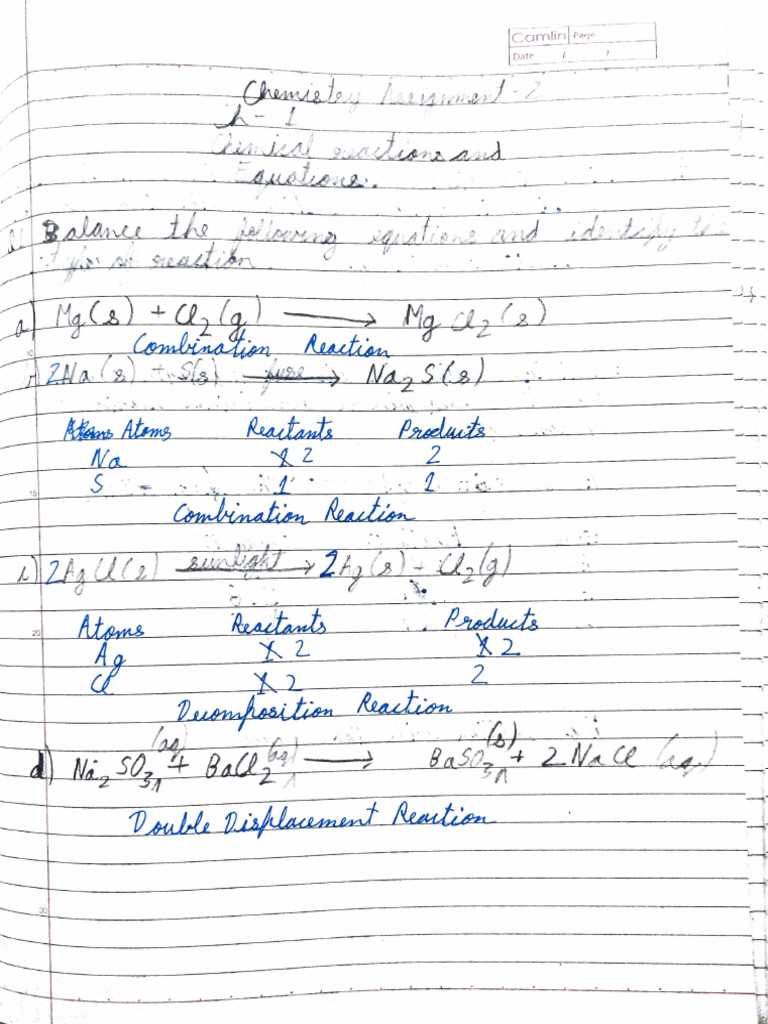 Camlin Page
Date / /
Chemistry Assignment - 2
Ch - 1
Chemical reactions and
Equations.
Balance the following equations and identify the
type of reaction
a) Mg(s) + Cl₂(g) ⟶ MgCl₂(s)
Combination Reaction
2Na(s) + S(s) fuse⟶ Na₂S(s)
Atoms Reactants Products
Na 1 2 2
S 1 1
Combination Reaction
c) 2AgCl(s) sunlight⟶ 2Ag(s) + Cl₂(g)
Atoms Reactants Products
Ag 1 2 1 2
Cl 1 2 2
Decomposition Reaction
d) Na₂SO₃(aq) + BaCl₂(aq) ⟶ BaSO₃(s) + 2NaCl(aq)
Double Displacement Reaction